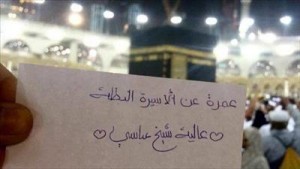 عمرة عن الأسيرة البطلة
♡ عالية شيخ عباسي ♡